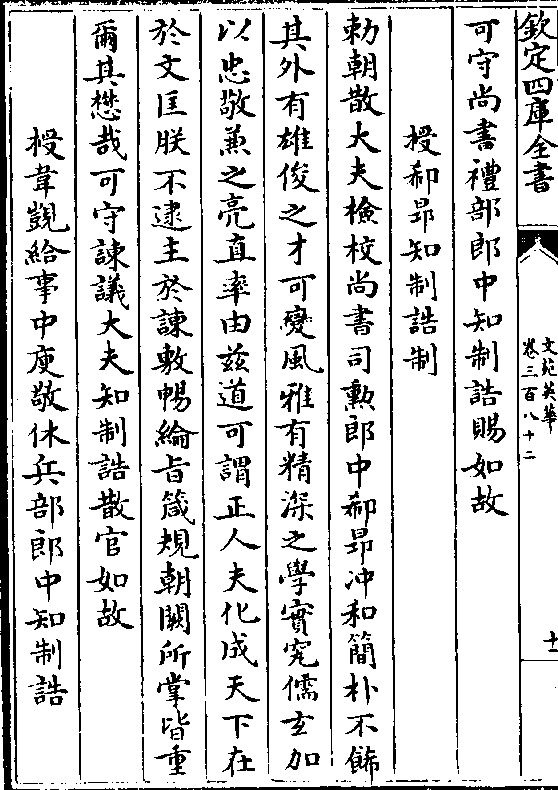 欽定四庫全書
文苑英華
卷三百八十二
十一
可守尚書禮部郎中知制誥賜如故
授郗昂知制誥制
勅朝散大夫檢校尚書司勲郎中郗昻冲和簡朴不飾
其外有雄俊之才可變風雅有精深之學實究儒玄加
以忠敬兼之亮直率由兹道可謂正人夫化成天下在
於文匡朕不逮主於諫敷暢綸旨箴規朝闕所掌皆重
爾其懋哉可守諫議大夫知制誥散官如故
授韋覬給事中庾敬休兵部郎中知制誥